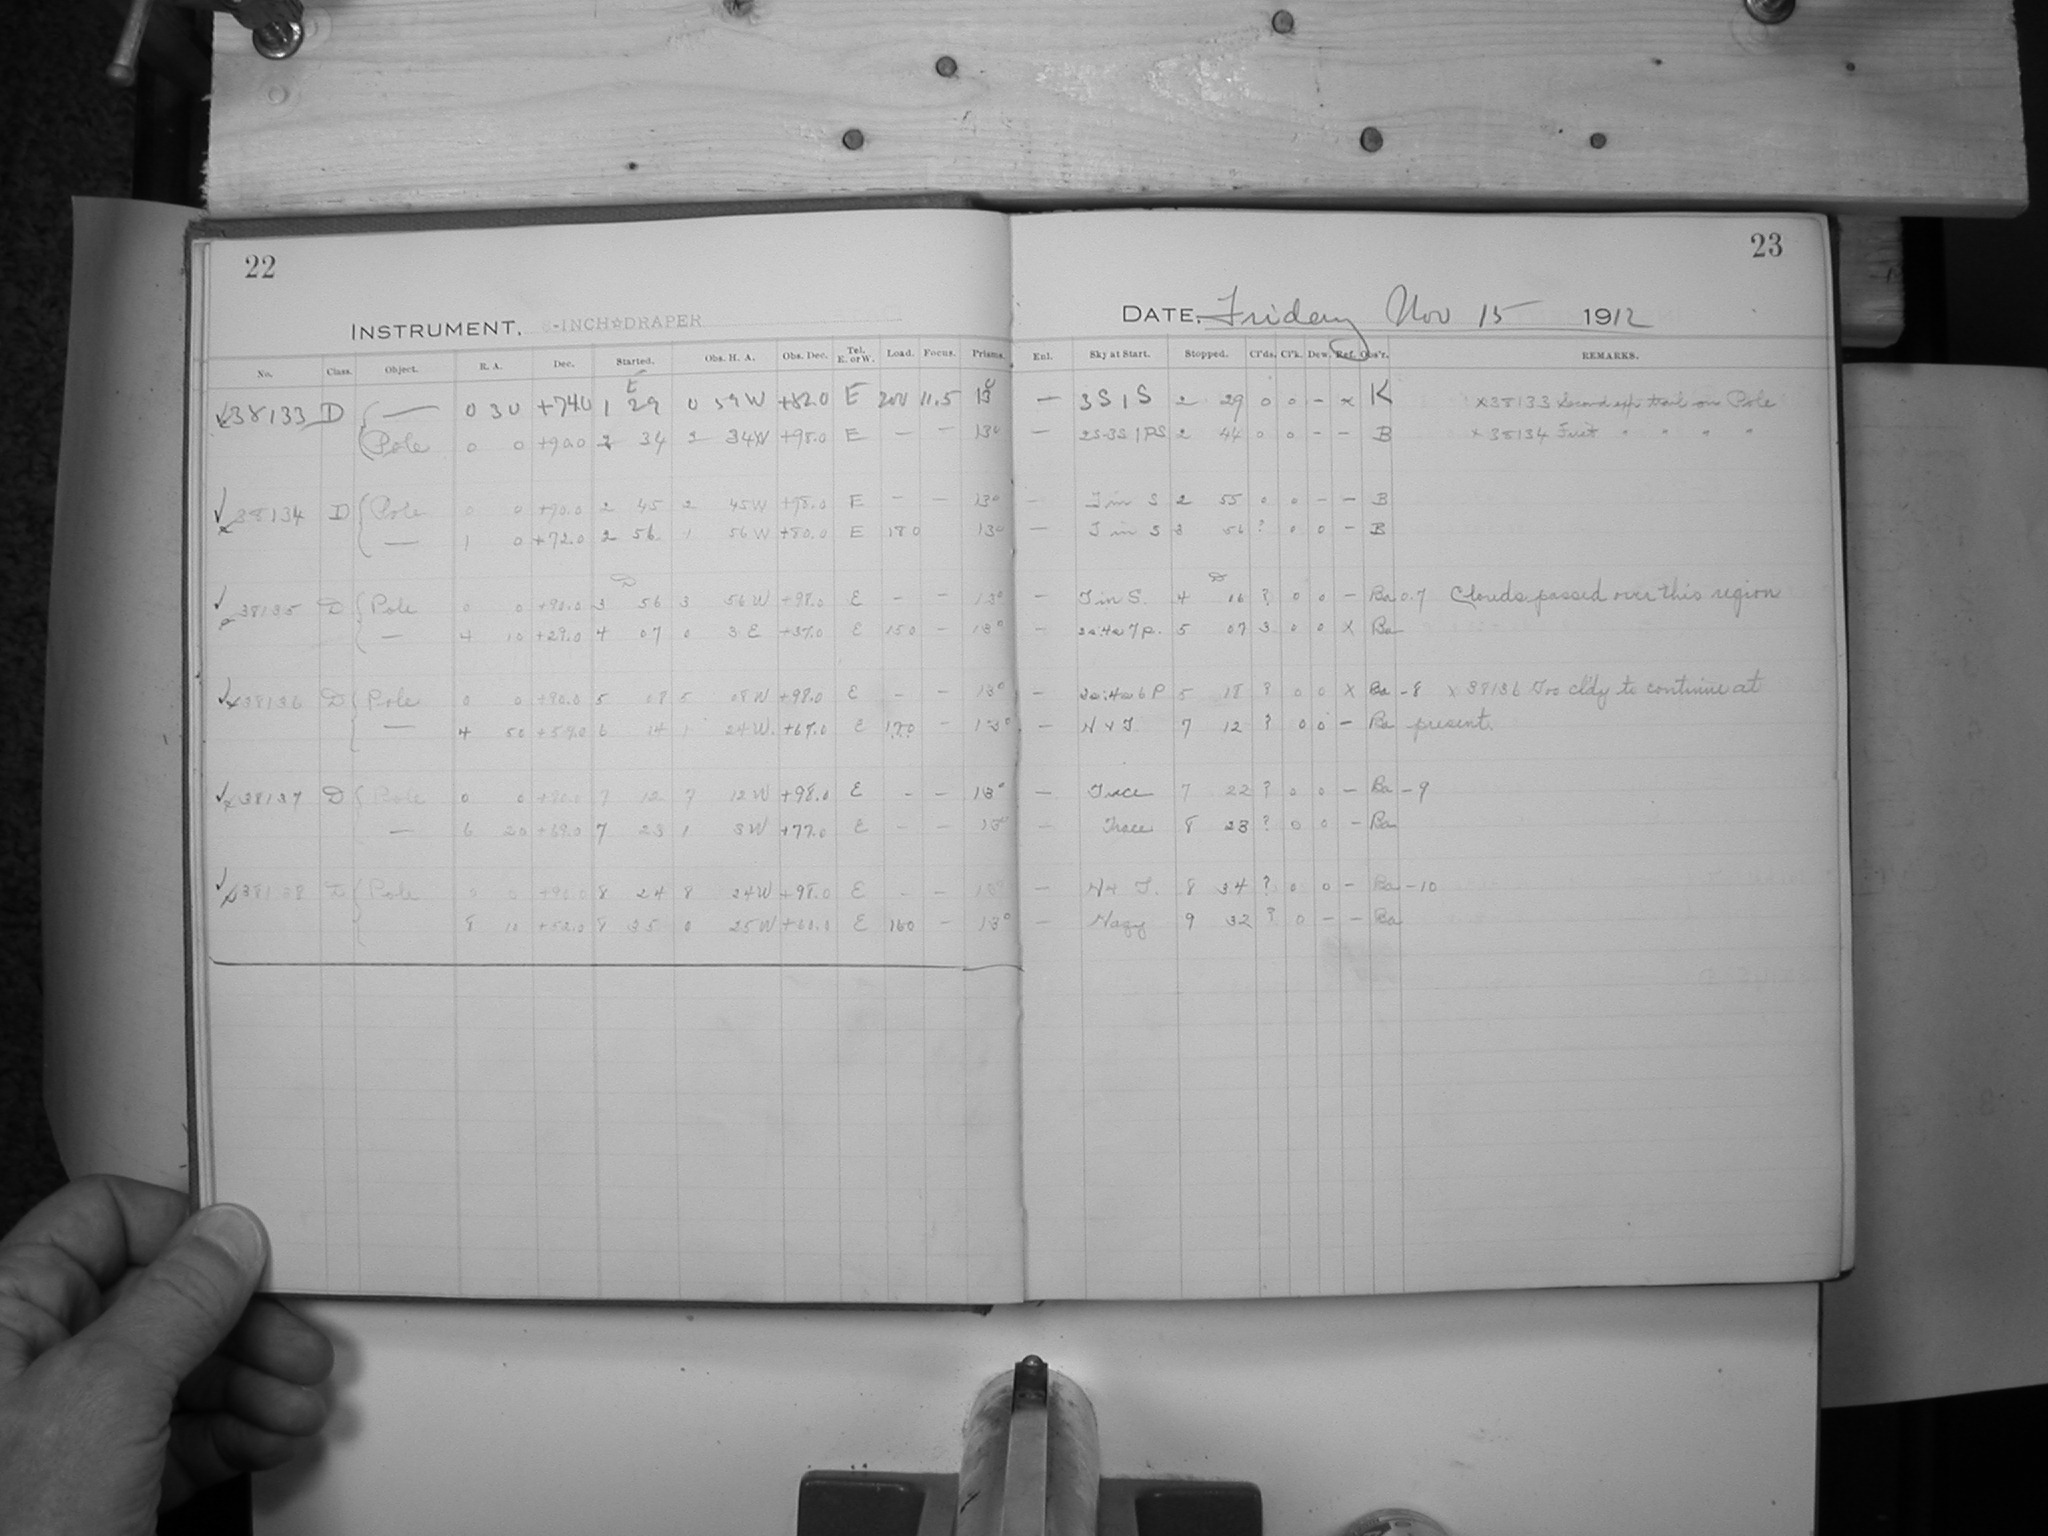 22
23
INSTRUMENT. 8-INCH DRAPER
DATE. Friday Nov 15 1912
No. Class. Object. R. A. Dec. Started. Obs. H. A. Obs. Dec. Tel. E. or W. Load. Focus. Prisms. Enl. Sky at Start. Stopped. Cl'ds. Cl'k. Dew. Ref. Obs'r. REMARKS.
38133 D { — 0 30 +74.0 1 29 0 59 W +82.0 E 200 11.5 13° — 3S1S 2 29 0 0 – x K x38133 Second exp. trail on Pole
Pole 0 0 +90.0 2 34 2 34W +98.0 E — — 13° — 2S-3S1PS 2 44 0 0 – – B x 38134 First " " " "
38134 D { Pole 0 0 +90.0 2 45 2 45W +98.0 E – – 13° — T in S 2 55 0 0 – – B
— 1 0 +72.0 2 56 1 56W +80.0 E 180 13° — T in S 3 56 ? 0 0 – B
38135 D { Pole 0 0 +90.0 3 56 3 56W +98.0 E – – 13° – T in S. 4 06 ? 0 0 – Ba 0.7 Clouds passed over this region
— 4 10 +29.0 4 07 0 3 E +37.0 E 150 – 13° – 5 07 3 0 0 X Ba
x38136 D { Pole 0 0 +90.0 5 08 5 08W +98.0 E – – 13° – 5 18 ? 0 0 X Ba – 8 x 38136 Too cl'dy to continue at
— 4 50 +59.0 6 14 1 24W. +67.0 E 170 – 13° – H & T 7 12 ? 0 0 – Ba present.
x38137 D { Pole 0 0 +90.0 7 12 7 12W +98.0 E – – 13° – Trace 7 22 ? 0 0 – Ba – 9
— 6 20 +69.0 7 23 1 3W +77.0 E – – 13° – Trace 8 23 ? 0 0 – Ba
38138 D { Pole 0 0 +90.0 8 24 8 24W +98.0 E – – 13° – H & T. 8 34 ? 0 0 – Ba – 10
8 10 +52.0 8 35 0 25W +60.0 E 160 – 13° – Hazy 9 32 ? 0 – – Ba